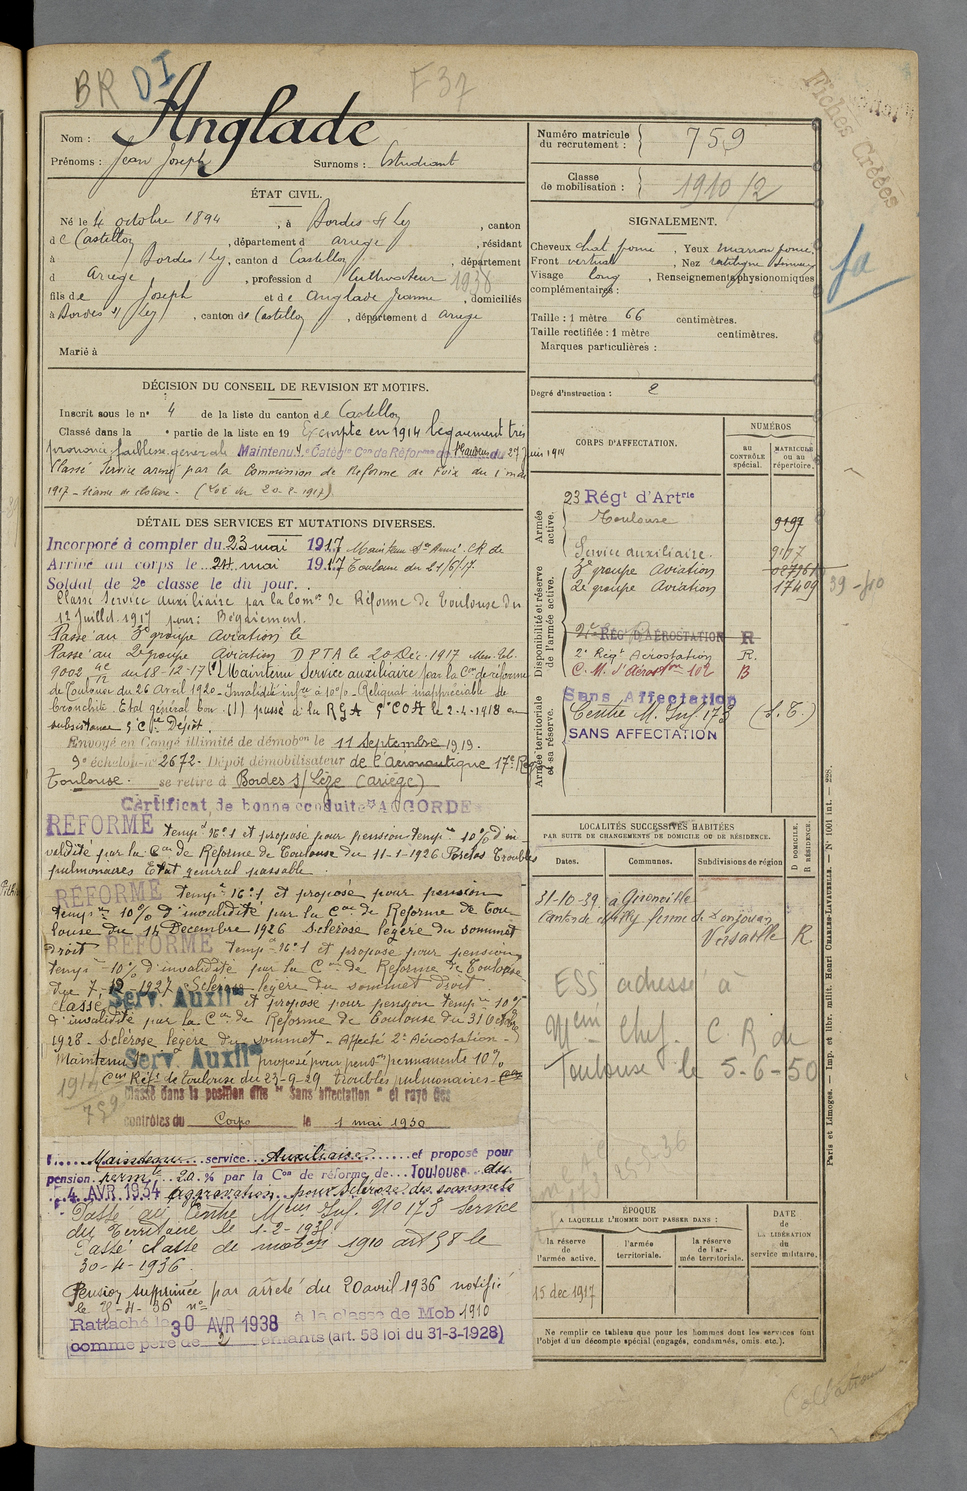 BR DI F 37
Anglade
Nom :
Prénoms : Jean Joseph Surnoms : Estudiant
ÉTAT CIVIL.
Né le 4 octobre 1894, à Bordes s/ Lez, canton
de Castillon, département d ariège, résidant
à Bordes s/ Lez, canton d Castillon, département
d Ariège, profession d Cultivateur 1938
fils de Joseph et de Anglade Jeanne, domiciliés
à Bordes s/ Lez, canton de Castillon, département d ariège
Marié à
DÉCISION DU CONSEIL DE REVISION ET MOTIFS.
Inscrit sous le n° 4 de la liste du canton de Castillon
Classé dans la • partie de la liste en 19 Exempté en 1914 bégaiement très
prononcé faiblesse générale. Maintenu Catégie Con de Réforme du 27 Juin 1914
Classé Service armé par la Commission de Réforme de Foix du 1 mai
1917 - séance de clôture - (Loi du 20-2-1917)
DÉTAIL DES SERVICES ET MUTATIONS DIVERSES.
Incorporé à compter du 23 mai 1917 Maintenu Sce Armé. CR de
Arrivé au corps le 24 mai 1917 Toulouse du 21/6/17
Soldat de 2e classe le dit jour.
Classé Service auxiliaire par la Comon de Réforme de Toulouse du
12 Juillet 1917 pour : Bégaiement.
Passé au 3e groupe Aviation le
Passé au 2e groupe Aviation DPTA le 20 Déc. 1917
9002 du 18-12-17 (1) Maintenu Service auxiliaire par la Con de réforme
de Toulouse du 26 Avril 1920 - Invalidité infre à 10 % - Reliquat inappréciable de
bronchite Etat général bon (1) passé à la RGA le 2-4-1918 en
subsistance Dépôt.
Envoyé en Congé illimité de démobon le 11 Septembre 1919.
9e échelon n° 2672 - Dépôt démobilisateur de l'Aéronautique 17e Région
Toulouse. se retire à Bordes s/ Lèze (Ariège)
Certificat de bonne conduite "ACCORDE"
REFORMÉ tempre n° 1 et proposé pour pension tempre 10 % d'in
validité par la Con de Réforme de Toulouse du 11-1-1926 Troubles
pulmonaires Etat général passable
REFORMÉ tempre n° 1 et proposé pour pension
tempre 10 % d'invalidité par la Con de Réforme de Tou
louse du 14 Décembre 1926 Sclérose légère du sommet
droit REFORMÉ tempre n° 1 et proposé pour pension
tempre 10 % d'invalidité par la Con de Réforme de Toulouse
du 7-12-1927. Sclérose légère du sommet droit.
classé Serv. Auxilre et proposé pour pension tempre 10 %
d'invalidité par la Con de Réforme de Toulouse du 31 Octobre
1928 - Sclérose légère du sommet - Affecté 2e Aérostation -
Maintenu Serv. Auxilre proposé pour pension permanente 10 %
Con Réfe de toulouse du 23-9-29 troubles pulmonaires
1914
759
Classé dans la position dite " Sans affectation " et rayé des
contrôles du Corps le 1 mai 1930
Maintenu service Auxiliaire et proposé pour
pension permte 20 % par la Con de réforme de Toulouse du
4 AVR 1934 aggravation pour sclérose des sommets
Passé au Centre Mcue Inf. N° 173 Service
du Territoire le 1-2-193
Passé classe de mobon 1910 art 58 le
30-4-1936.
Pension supprimée par arrêté du 20 avril 1936 notifié
Rattaché le 30 AVR 1938 à la classe de Mob 1910
comme père de 2 enfants (art. 58 loi du 31-3-1928)
Numéro matricule du recrutement : 759
Classe de mobilisation : 1910/2
Fiches Créées
SIGNALEMENT.
Cheveux chat foncé, Yeux marron foncé
Front vertical, Nez rectiligne
Visage long, Renseignements physionomiques
complémentaires :
Taille : 1 mètre 66 centimètres.
Taille rectifiée : 1 mètre centimètres.
Marques particulières :
Degré d'instruction : 2
CORPS D'AFFECTATION.
NUMÉROS
AU CONTRÔLE spécial.
MATRICULE OU AU répertoire.
Armée active.
23 Régt d'Artrie
Toulouse 9197
Service auxiliaire. 9197
3e groupe Aviation
2e groupe Aviation 17409
39 -
Disponibilité et réserve de l'armée active.
RÉGt D'AÉROSTATION R
2e Régt Aérostation R.
C. M. d'Aérostion 102 B
Armée territoriale et sa réserve.
Sans Affectation
Centre M. Inf. 173 (S.T.)
SANS AFFECTATION
LOCALITÉS SUCCESSIVES HABITÉES
PAR SUITE DE CHANGEMENTS DE DOMICILE OU DE RÉSIDENCE.
Dates. Communes. Subdivisions de région
D DOMICILE. R RÉSIDENCE.
31-10-39. à Gironville
Canton de Milly ferme de
Versaille R.
ESS adressé à
Mcin Chef. C. R de
Toulouse le 5-6-50
25-5-36
ÉPOQUE
A LAQUELLE L'HOMME DOIT PASSER DANS :
la réserve de l'armée active.
l'armée territoriale.
la réserve de l'armée territoriale.
DATE de LA LIBÉRATION du service militaire.
15 dec 1917
Ne remplir ce tableau que pour les hommes dont les services font
l'objet d'un décompte spécial (engagés, condamnés, omis, etc.).
Paris et Limoges. — Imp. et libr. milit. Henri CHARLES-LAVAUZELLE. — N° 1001 int. — 228.